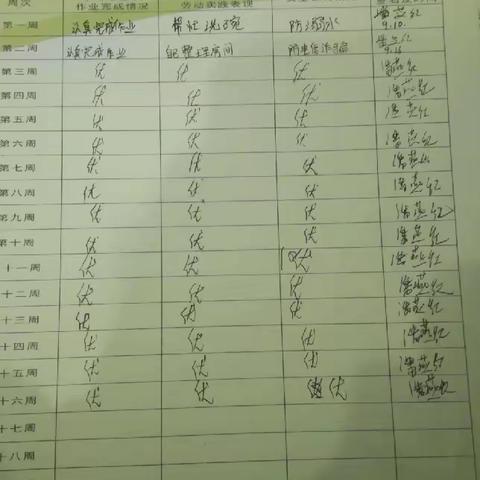 周次 作业完成情况 劳动实践表现
第一周 认真完成作业 帮忙洗碗 防溺水 9.10.
第二周 认真完成作业 整理房间 9.16
第三周 优 优 优 燕红
第四周 优 优 优 燕红
第五周 优 优 优 燕红
第六周 优 优 优 燕红
第七周 优 优 优 燕红
第八周 优 优 优 燕红
第九周 优 优 优 燕红
第十周 优 优 优 燕红
十一周 优 优 优 燕红
十二周 优 优 优 燕红
十三周 优 优 优 燕红
十四周 优 优 优 燕红
十五周 优 优 优 燕红
十六周 优 优 优 燕红
十七周
十八周